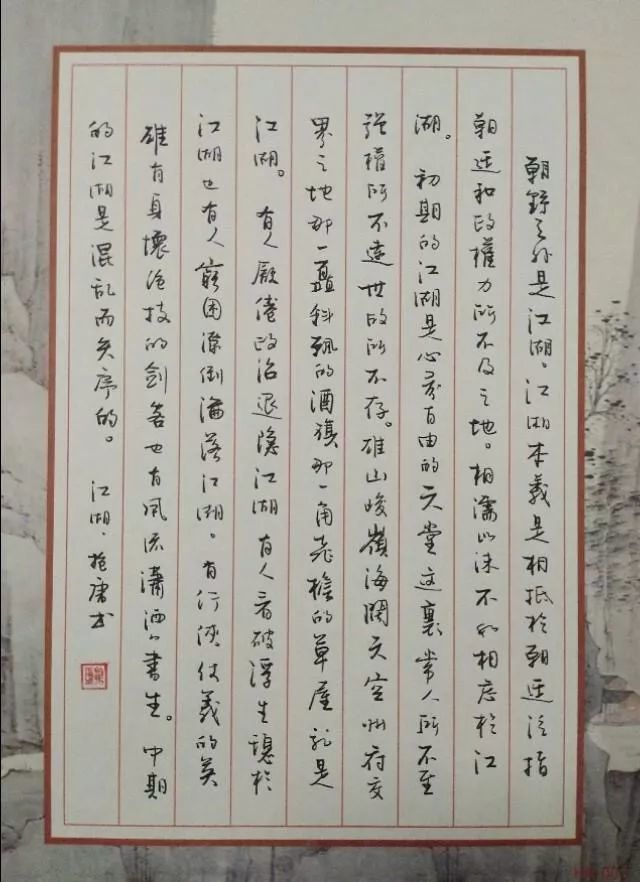 朝野之外是江湖。江湖本義是相抵於朝廷泛指
朝廷和政權力所不及之地。相濡以沫不如相忘於江
湖。初期的江湖是心灵自由的天堂这裏常人所不至
强權所不達世故所不存。雄山峻嶺海闊天空州府交
界之地那一盏斜飘的酒旗那一角飞檐的草屋就是
江湖。有人厭倦政治退隐江湖有人看破浮生穏於
江湖也有人窮困潦倒淪落江湖。有行俠仗義的英
雄有身懷绝技的劍客也有风流瀟洒的書生。中期
的江湖是混乱而失序的。江湖·